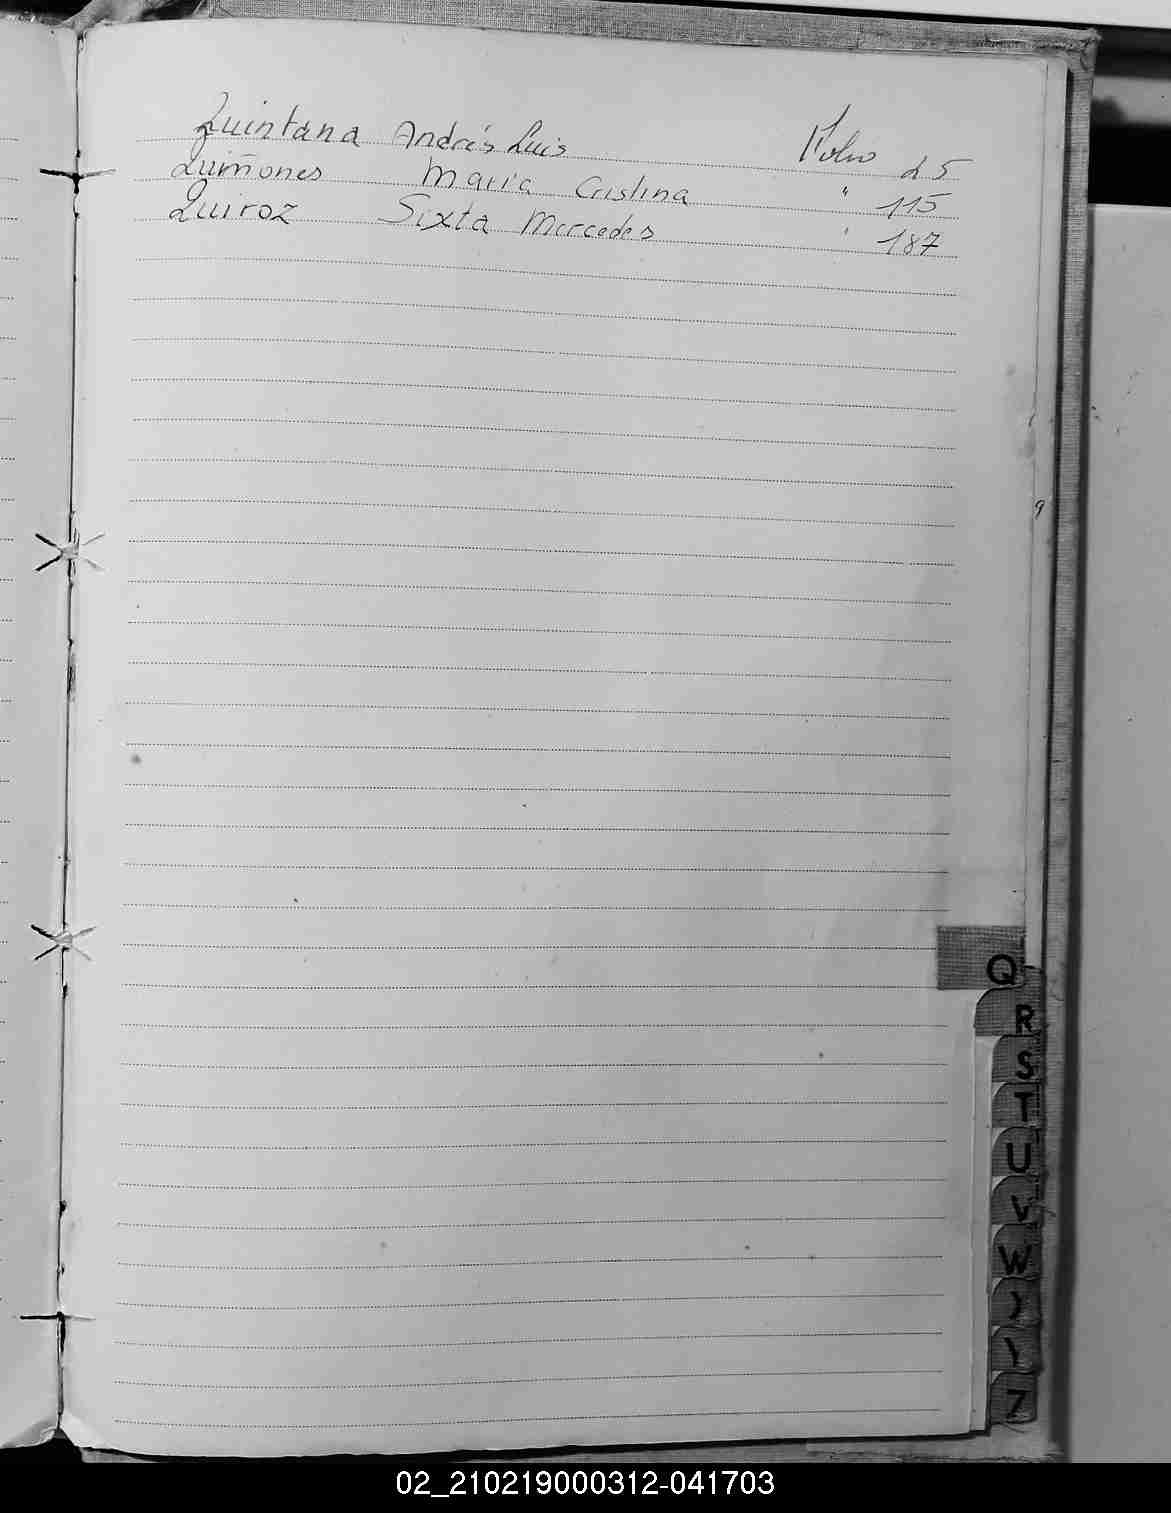 Quintana Andrés Luis Folio 25
Quiñones María Cristina " 115
Quiroz Sixta Mercedes " 187
9
Q
R
S
T
U
V
W
Z
02_210219000312-041703